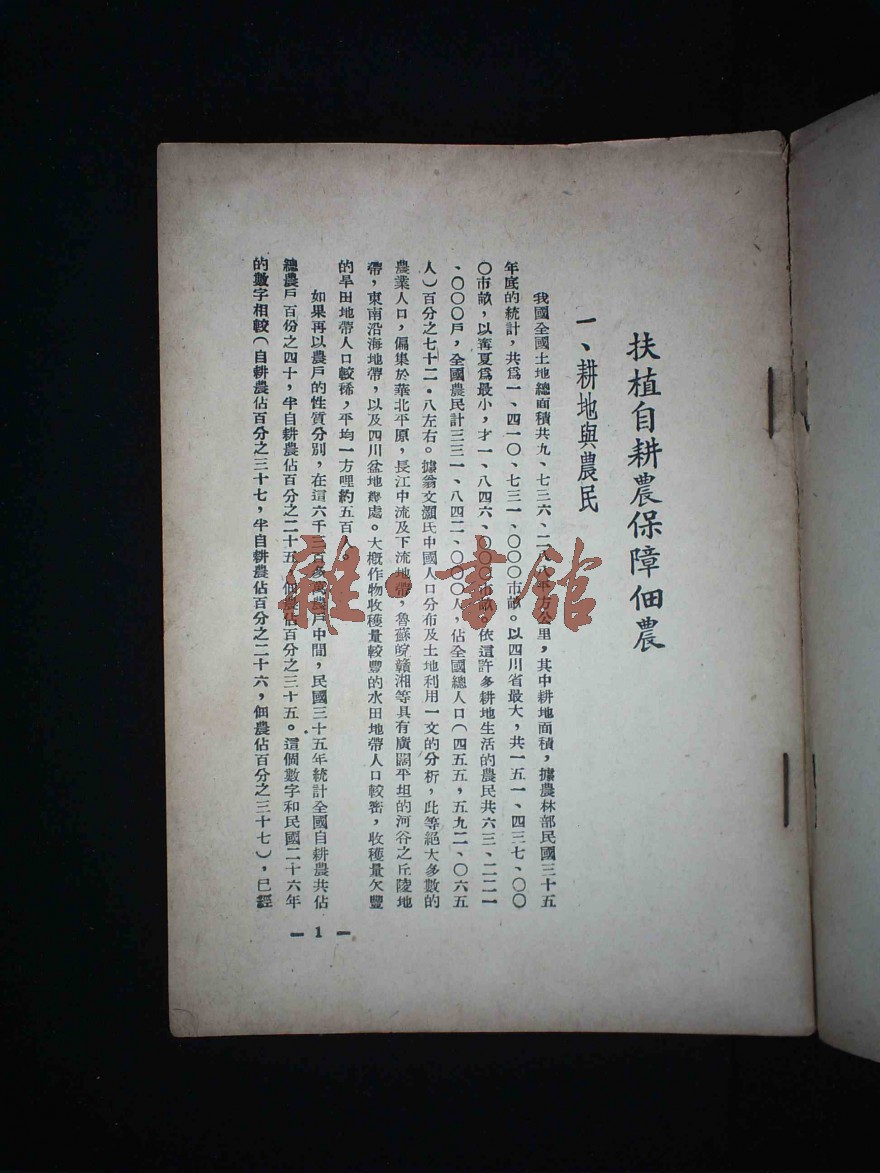 扶植自耕農保障佃農
一、耕地與農民
我國全國土地總面積共九、七三六、二八八平方公里,其中耕地面積,據農林部民國三十五
年底的統計,共爲一、四一〇、七三一、〇〇〇市畝。以四川省最大,共一五一、四三七、〇〇
〇市畝,以寗夏爲最小,才一、八四六、〇〇〇市畝。依這許多耕地生活的農民共六三、二二一
、〇〇〇戶,全國農民計三三一、八四二、〇〇〇人,佔全國總人口(四五五,五九二、〇六五
人)百分之七十二・八左右。據翁文灝氏中國人口分布及土地利用一文的分析,此等絕大多數的
農業人口,偏集於華北平原,長江中流及下流地帶,魯蘇皖贛湘等具有廣闊平坦的河谷之丘陵地
帶,東南沿海地帶,以及四川盆地幾處。大槪作物收穫量較豐的水田地帶人口較密,收穫量欠豐
的旱田地帶人口較稀,平均一方哩約五百人。
如果再以農戶的性質分別,在這六千三百多萬農戶中間,民國三十五年統計全國自耕農共佔
總農戶百份之四十,半自耕農佔百分之二十五,佃農佔百分之三十五。這個數字和民國二十六年
的數字相較(自耕農佔百分之三十七,半自耕農佔百分之二十六,佃農佔百分之三十七),已經
— 1 —
雜・書館